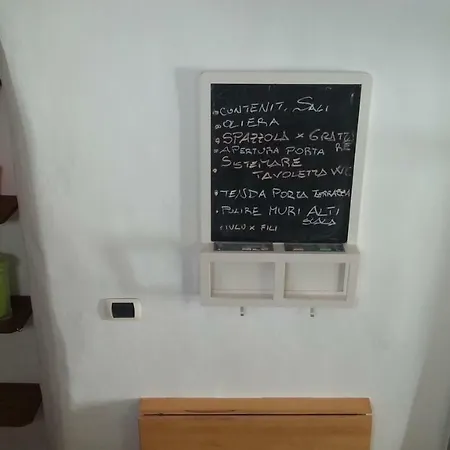 CONTENIT. SALI
OLIERA
SPAZZOLA x GRATTARE
APERTURA PORTA
SISTEMARE
TAVOLETTA WC
TENDA PORTA TERRAZZA
PULIRE MURI ALTI
SCALA
x FILI